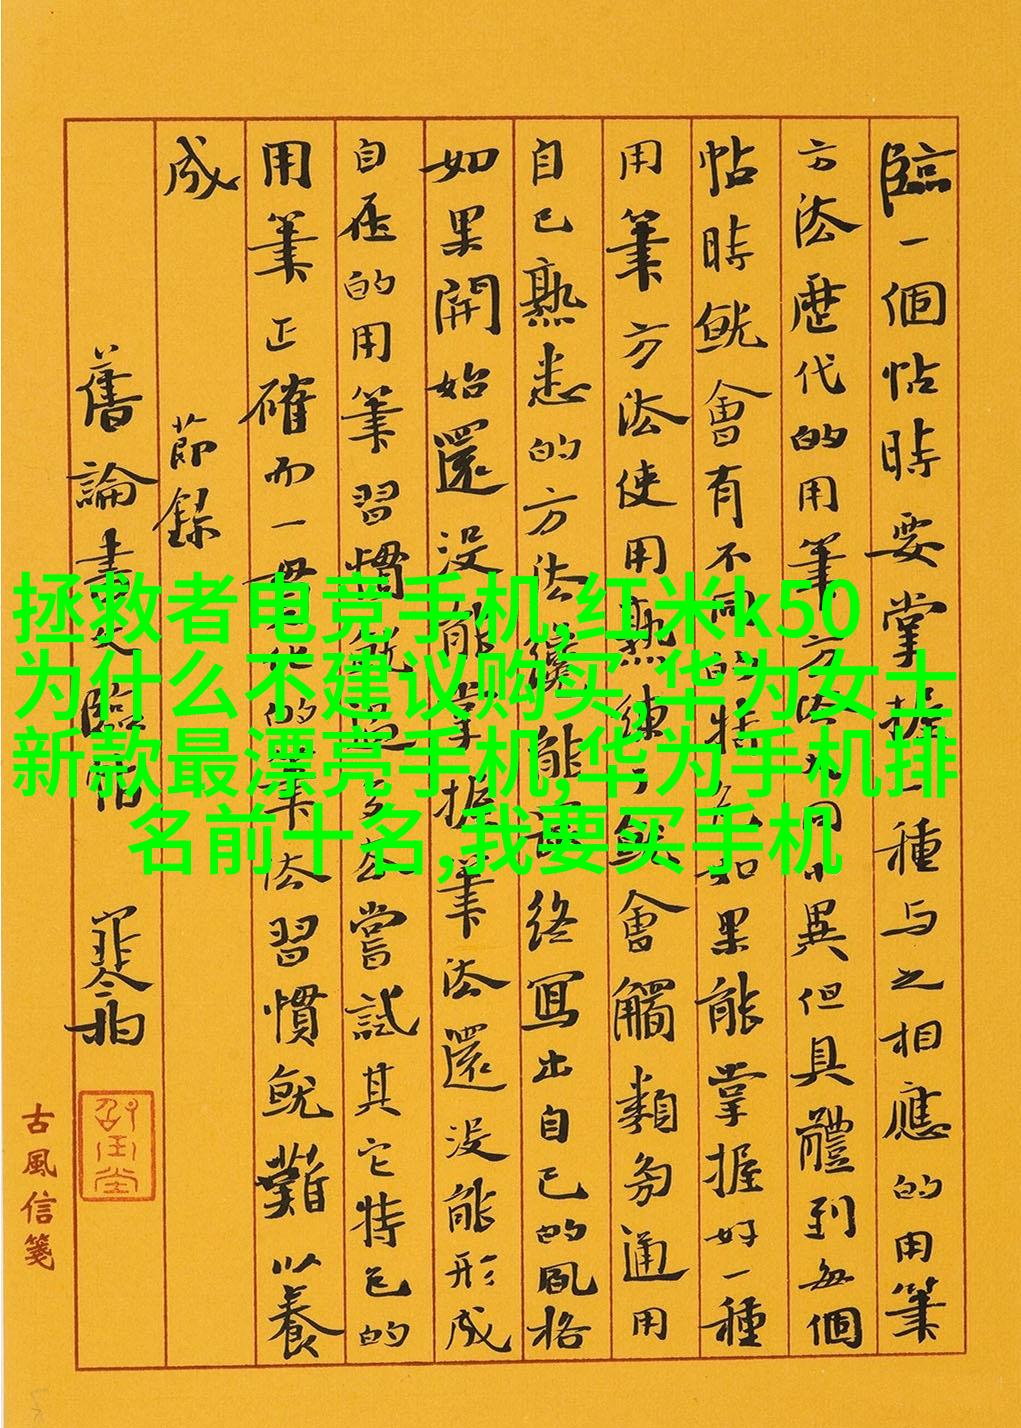 臨一個帖時要掌握一種与之相應的用筆
方法歷代的用筆方法大同小異但具體到每個
帖時就會有不同的特點如果能掌握好一種
用筆方法使用熟練了就會觸類旁通用
自己熟悉的方法 能 終寫出自己的風格
如果開始還沒能掌握筆法還沒能形成
自在的用筆習慣就過多去嘗試其它特色的
用筆正確而一貫 的筆法習慣就難以養
成 節錄
舊論書文臨帖
古風信箋
拯救者电竞手机,红米k50
为什么不建议购买,华为女士
新款最漂亮手机,华为手机排
名前十名,我要买手机